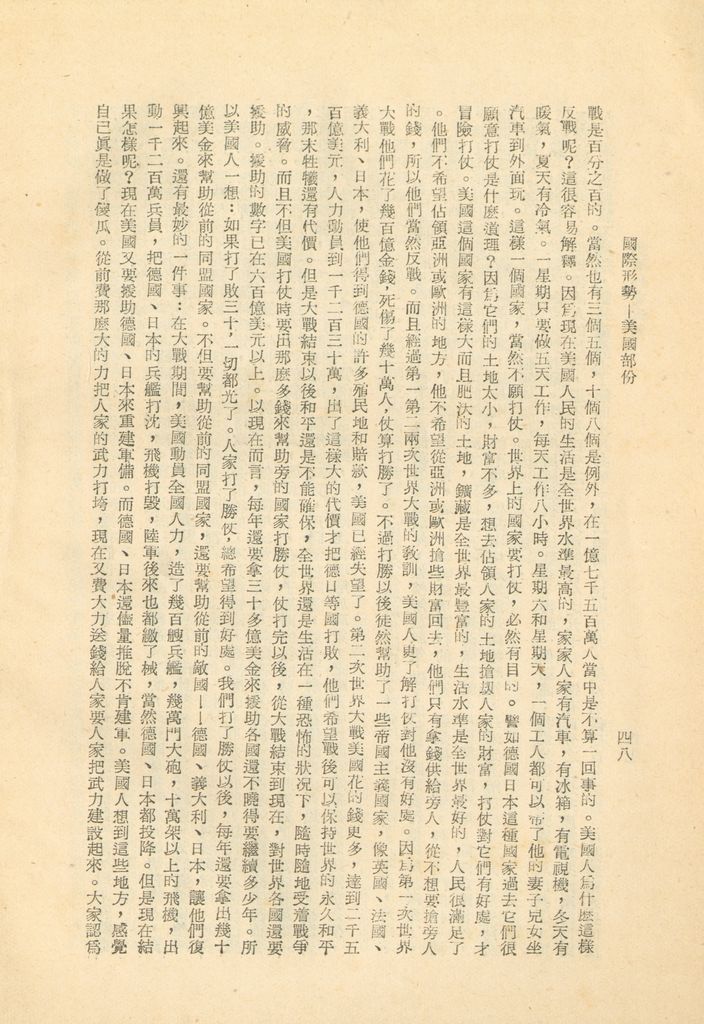 國際形勢—美國部份
四八
戰是百分之百的。當然也有三個五個,十個八個是例外,在一億七千五百萬人當中是不算一回事的。美國人爲什麼這樣
反戰呢?這很容易解釋。因爲現在美國人民的生活是全世界水準最高的,家家人家有汽車,有冰箱,有電視機,冬天有
暖氣,夏天有冷氣。一星期只要做五天工作,每天工作八小時。星期六和星期天,一個工人都可以帶了他的妻子兒女坐
汽車到外面玩。這樣一個國家,當然不願打仗。世界上的國家要打仗,必然有目的。譬如德國日本這種國家過去它們很
願意打仗是什麼道理?因爲它們的土地太小,財富不多,想去佔領人家的土地搶認人家的財富,打仗對它們有好處,才
冒險打仗。美國這個國家有這樣大而且肥沃的土地,鑛藏是全世界最豐富的,生活水準是全世界最好的,人民很滿足了
。他們不希望佔領亞洲或歐洲的地方,他不希望從亞洲或歐洲搶些財富回去,他們只有拿錢供給旁人,從不想要搶旁人
的錢,所以他們當然反戰。而且經過第一第二兩次世界大戰的教訓,美國人更了解打仗對他沒有好處。因爲第一次世界
大戰他們花了幾百億金錢,死傷了幾十萬人,仗算打勝了。不過打勝以後徒然幫助了一些帝國主義國家,像英國、法國、
義大利、日本,使他們得到德國的許多殖民地和賠款,美國已經失望了。第二次世界大戰美國花的錢更多,達到二千五
百億美元,人力動員到一千二百三十萬,出了這樣大的代價才把德日等國打敗,他們希望戰後可以保持世界的永久和平
,那末牲犧還有代價。但是大戰結束以後和平還是不能確保,全世界還是生活在一種恐怖的狀況下,隨時隨地受着戰爭
的威脅。而且不但美國打仗時要出那麽多錢來幫助旁的國家打勝仗,仗打完以後,從大戰結束到現在,對世界各國還要
援助。援助的數字已在六百億美元以上。以現在而言,每年還要拿三十多億美金來援助各國還不曉得要繼續多少年。所
以美國人一想:如果打了敗三十,一切都光了。人家打了勝仗,總希望得到好處。我們打了勝仗以後,每年還要拿出幾十
億美金來幫助從前的同盟國家。不但要幫助從前的同盟國家,還要幫助從前的敵國——德國、義大利、日本,讓他們復
興起來。還有最妙的一件事:在大戰期間,美國動員全國人力,造了幾百艘兵艦,幾萬門大砲,十萬架以上的飛機,出
動一千二百萬兵員,把德國、日本的兵艦打沈,飛機打毀,陸軍後來也都繳了械,當然德國、日本都投降。但是現在結
果怎樣呢?現在美國又要援助德國、日本來重建軍備。而德國、日本還儘量推脫不肯建軍。美國人想到這些地方,感覺
自己眞是做了傻瓜。從前費那麽大的力把人家的武力打垮,現在又費大力送錢給人家要人家把武力建設起來。大家認爲